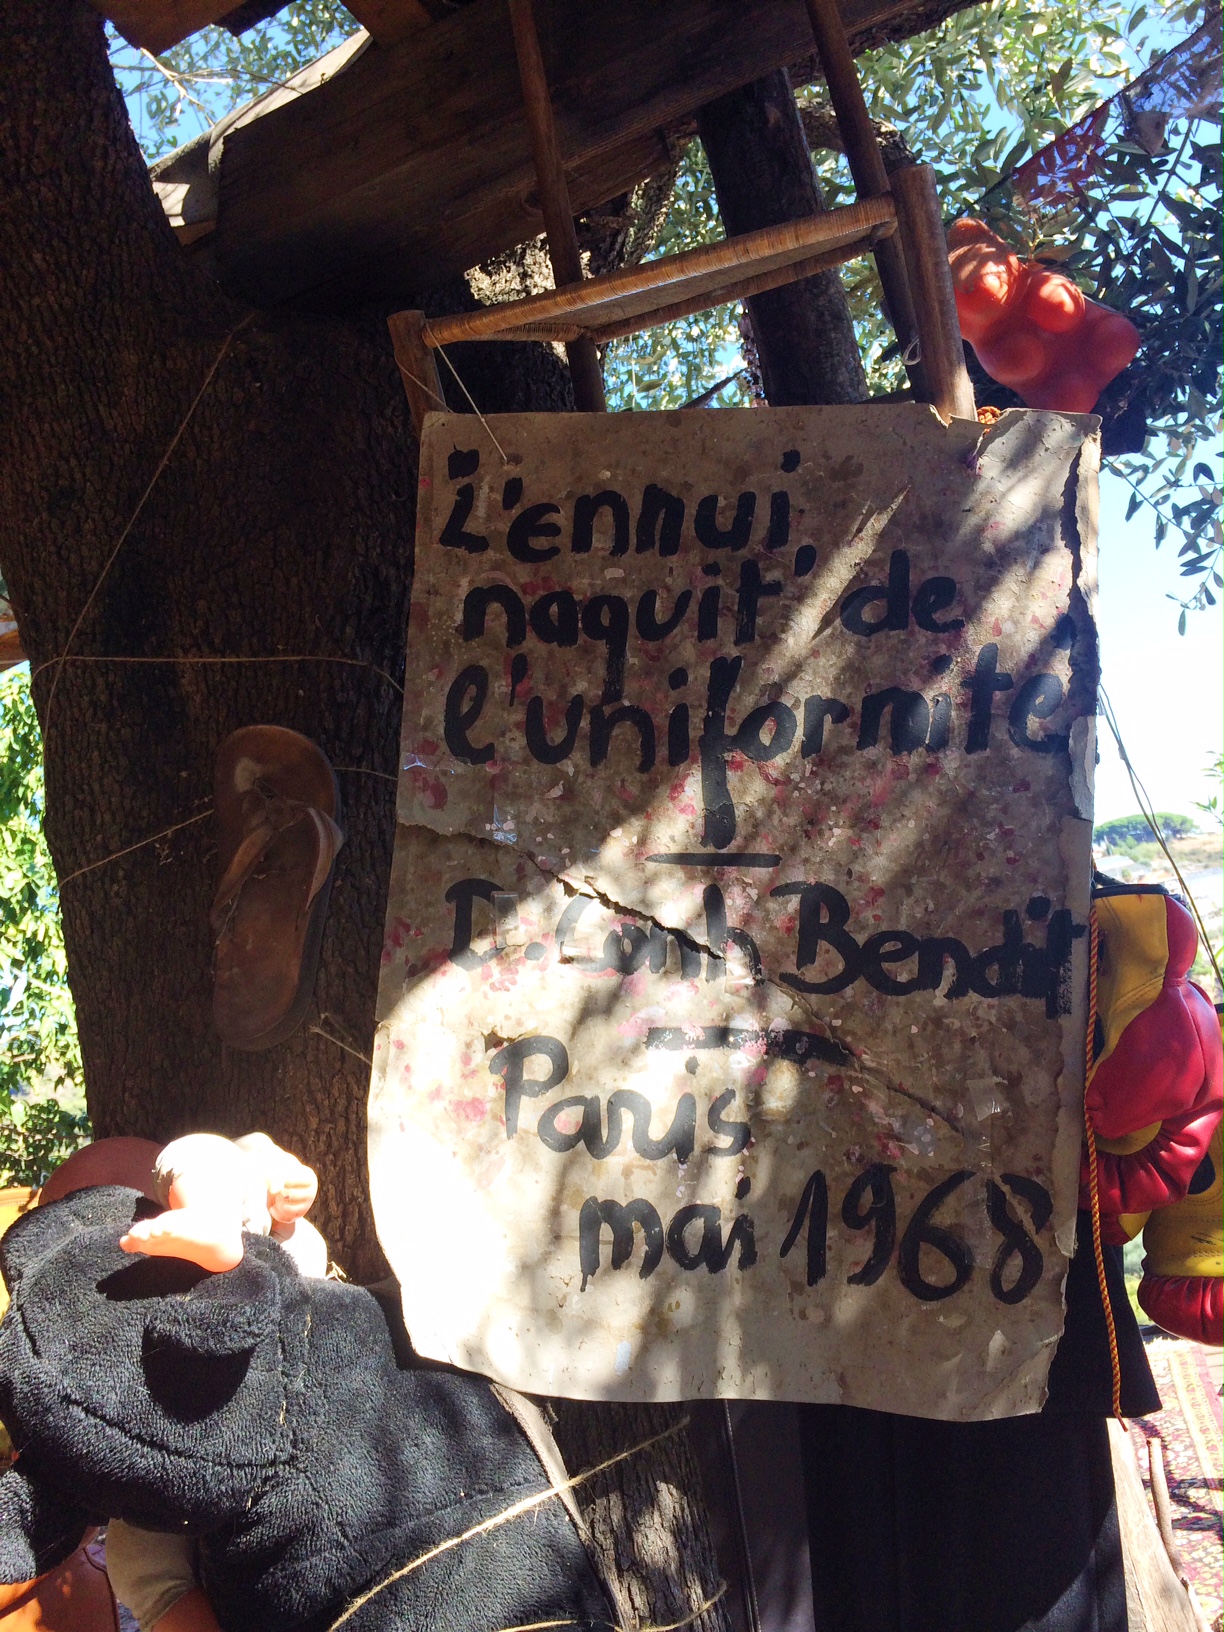 L'ennui
naquit de
l'uniformité
D. Conh Bendit
Paris
mai 1968